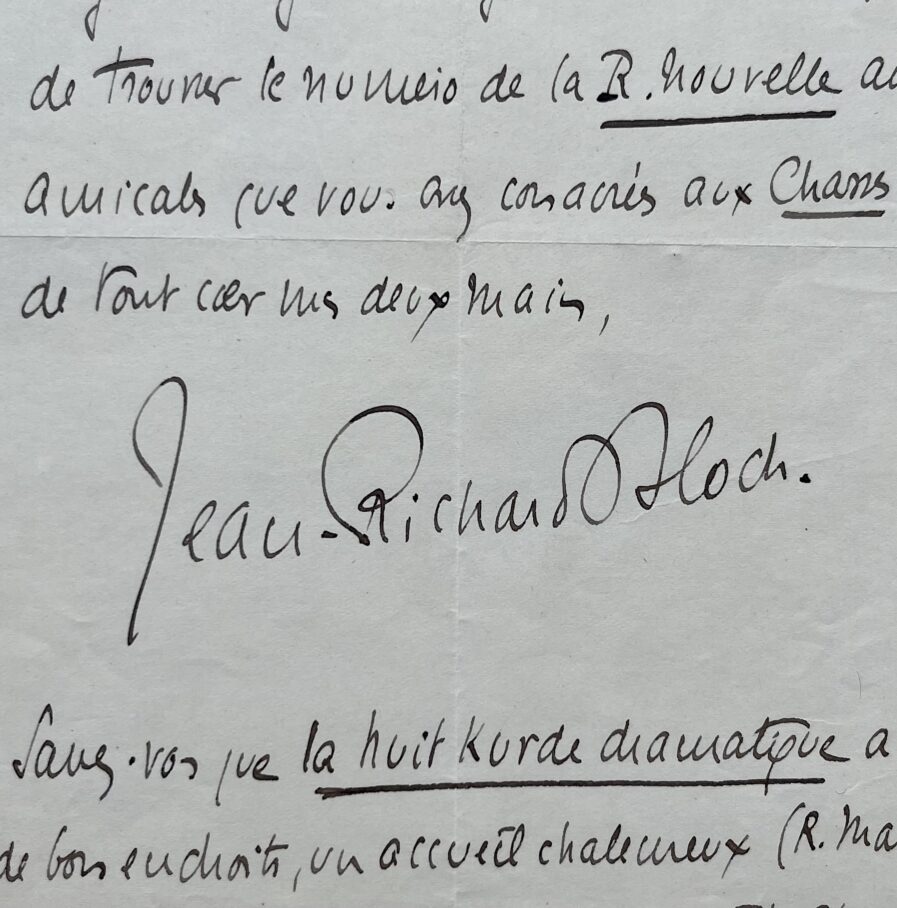 de trouver le numéro de la R. Nouvelle
amicales que vous avez consacrés aux Chasses
de tout cœur mes deux mains,
Jean-Richard Bloch.
Savez-vous que la Nuit Kurde dramatique a
de bons endroits, un accueil chaleureux (R. Ma